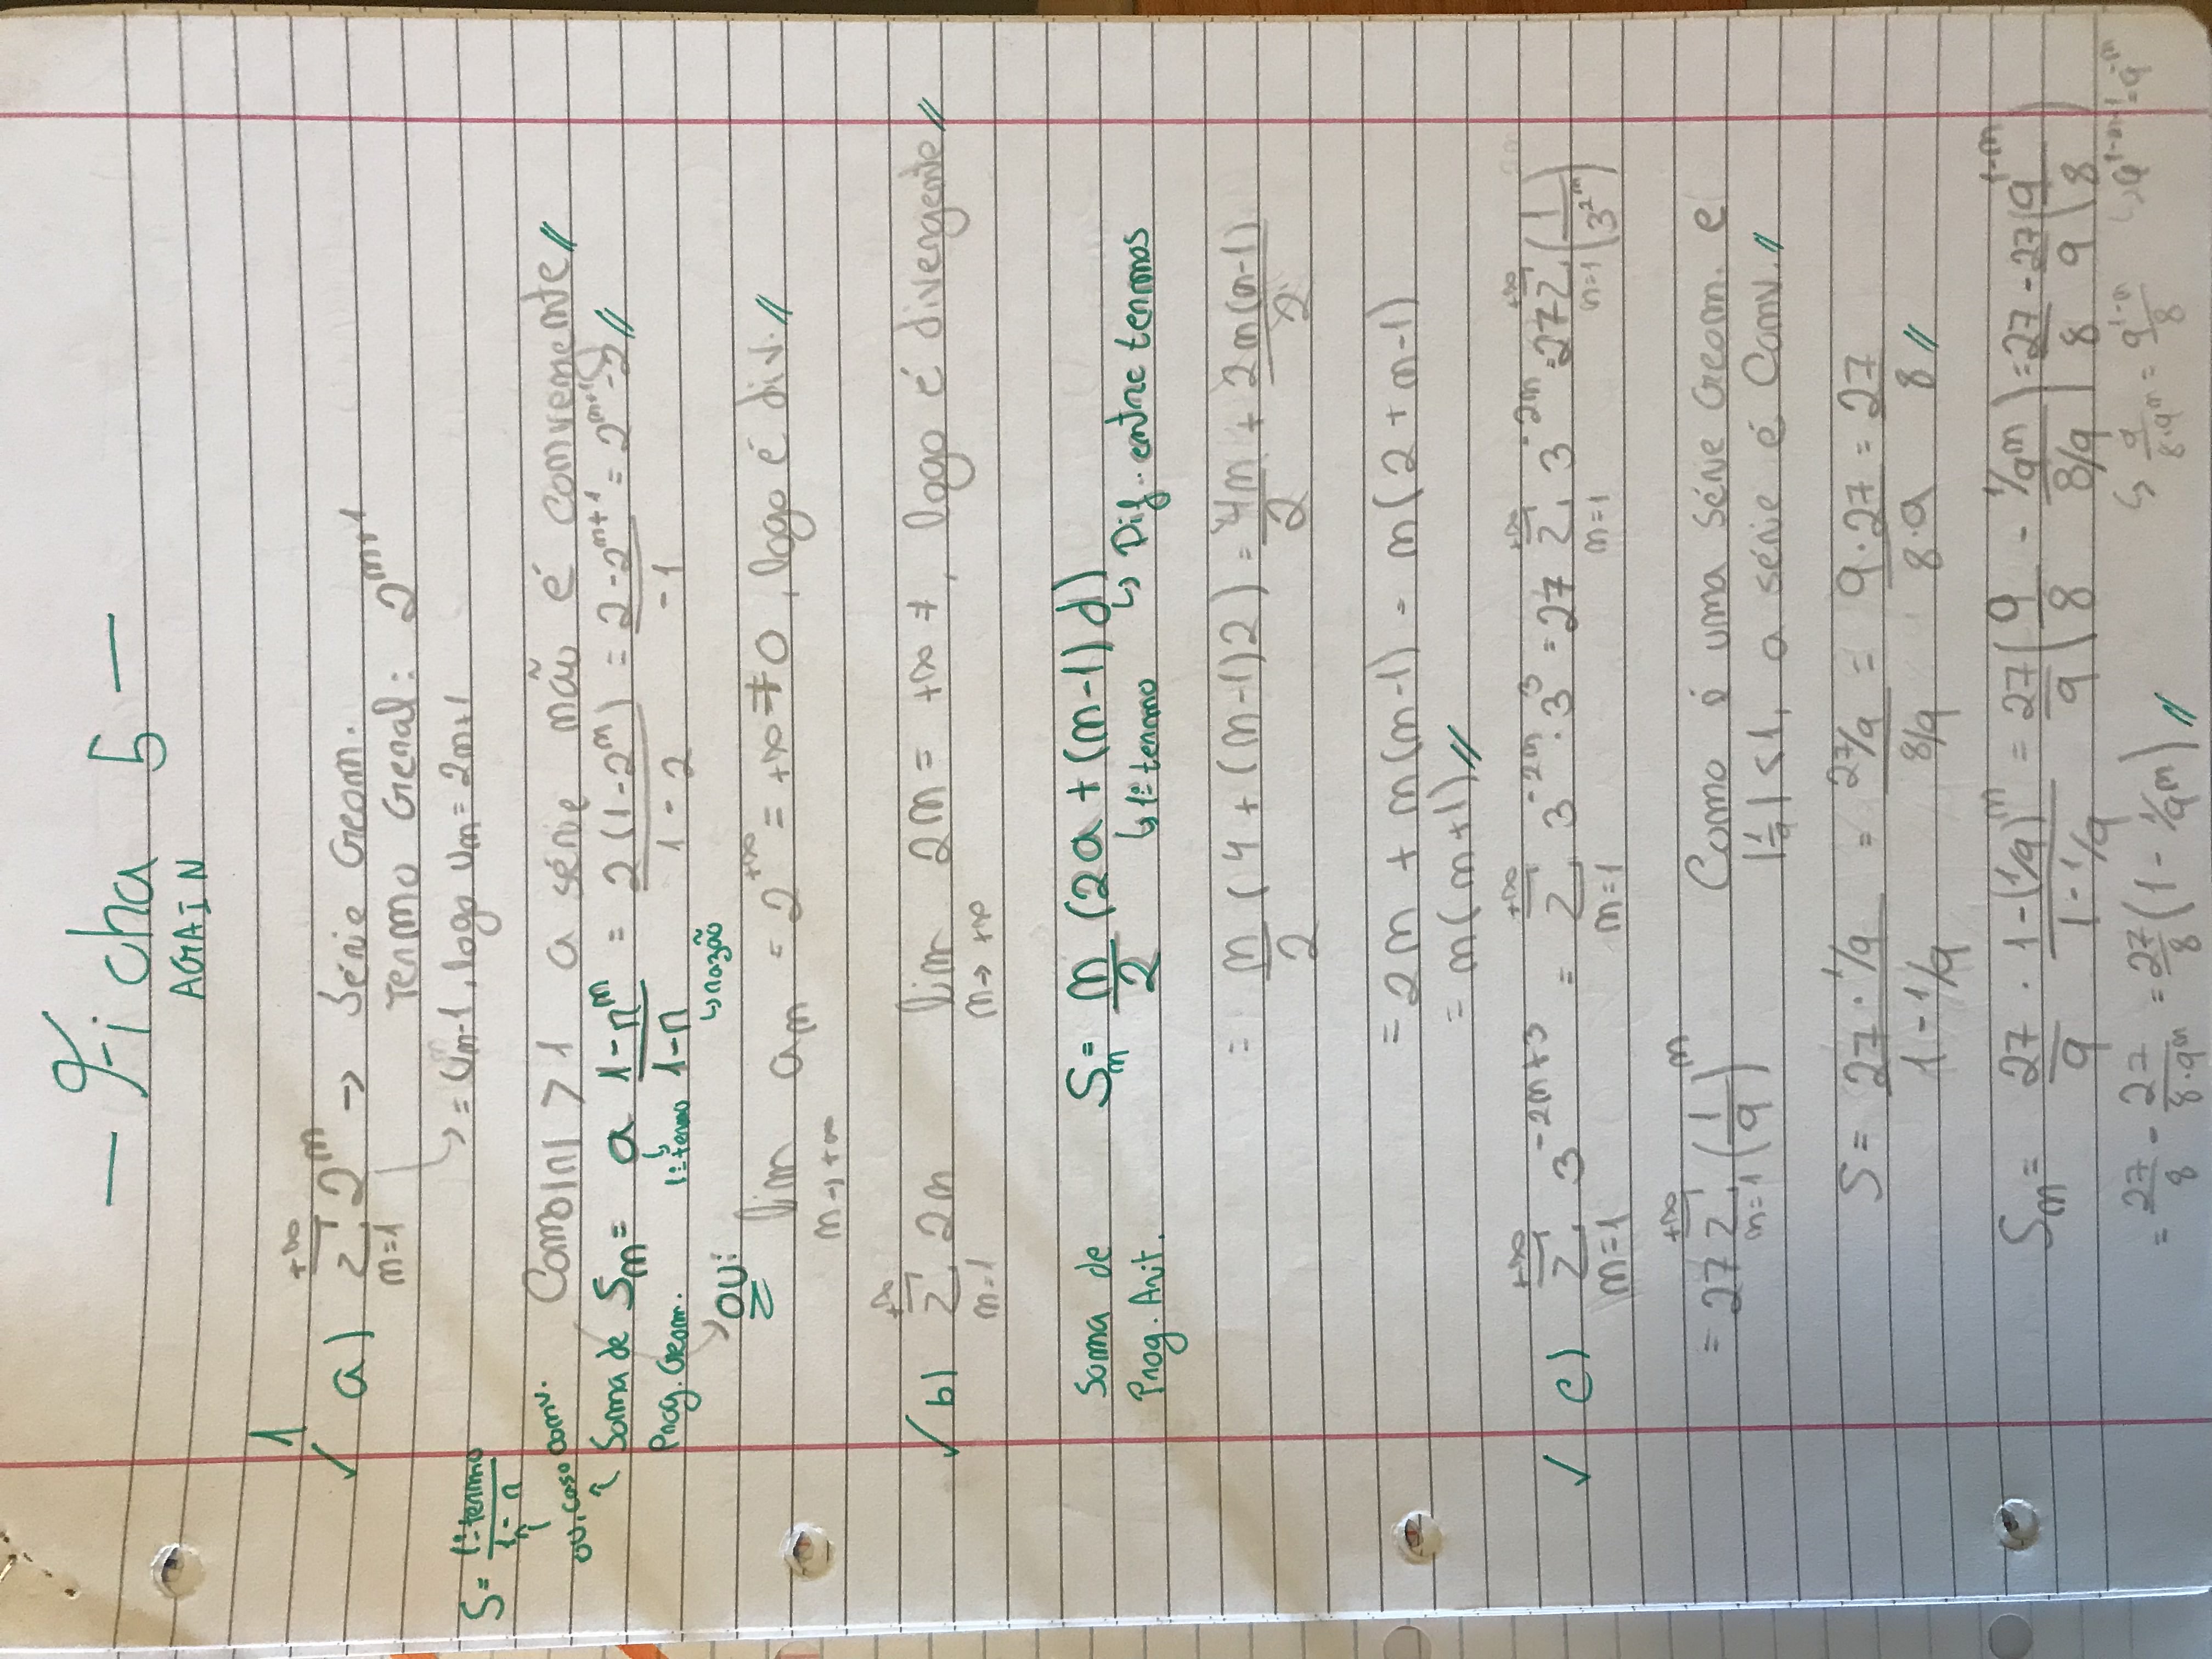 — Ficha 5 —
AGAIN
1
✓ a) +∞ Σ m=1 2^m → Série Geom.
Termo Geral: 2^m+1
↳ = Um-1, logo Um = 2m+1
S = 1º termo / 1 - r
↑
ou, caso conv.
Como |r| > 1 a série não é convergente //
Soma de Prog. Geom. Sm = a (1-r^m)/(1-r) = 2(1-2^m)/(1-2) = (2-2^m+1)/(-1) = 2^m+1 - 2 //
↳ 1º termo
↳ razão
OU:
lim m→+∞ am = 2^+∞ = +∞ ≠ 0, logo é div. //
✓ b) +∞ Σ m=1 2m lim m→+∞ 2m = +∞ ≠, logo é divergente //
Soma de Prog. Arit. Sm = m/2 (2a + (m-1) d)
↳ 1º termo ↳ Dif. entre termos
= m/2 (4 + (m-1)2) = 4m/2 + 2m(m-1)/2
= 2m + m(m-1) = m(2+m-1)
= m(m+1) //
✓ c) +∞ Σ m=1 3^-2m+3 = +∞ Σ m=1 3^-2m · 3^3 = 27 +∞ Σ m=1 3^-2m = 27 +∞ Σ m=1 (1/3^2m)
= 27 +∞ Σ m=1 (1/9)^m Como é uma série Geom. e
|1/9| < 1, a série é Conv. //
S = (27 · 1/9)/(1 - 1/9) = (27/9)/(8/9) = (9·27)/(8·9) = 27/8 //
Sm = 27/9 · (1-(1/9)^m)/(1-1/9) = 27/9 (9/8 - (1/9^m)/(8/9)) = 27/8 - 27/9 (9^1-m/8)
↳ 9/(8·9^m) = 9^1-m/8 ↳ 9^1-m-1 = 9^-m
= 27/8 - 27/(8·9^m) = 27/8 (1 - 1/9^m) //